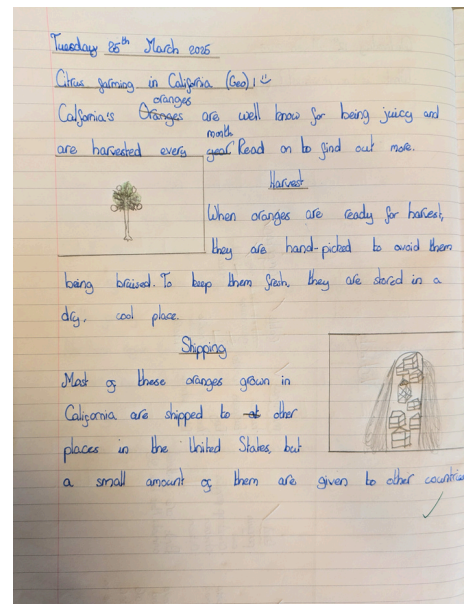 Tuesday 25th March 2025
Citrus farming in California (Geo) !
oranges
Calfornia's Oranges are well know for being juicy and
month
are harvested every year Read on to find out more.
Harvest
When oranges are ready for harvest,
they are hand-picked to avoid them
being bruised. To keep them fresh, they are stored in a
dry, cool place.
Shipping
Most of these oranges grown in
California are shipped to other
places in the United States, but
a small amount of them are given to other countries